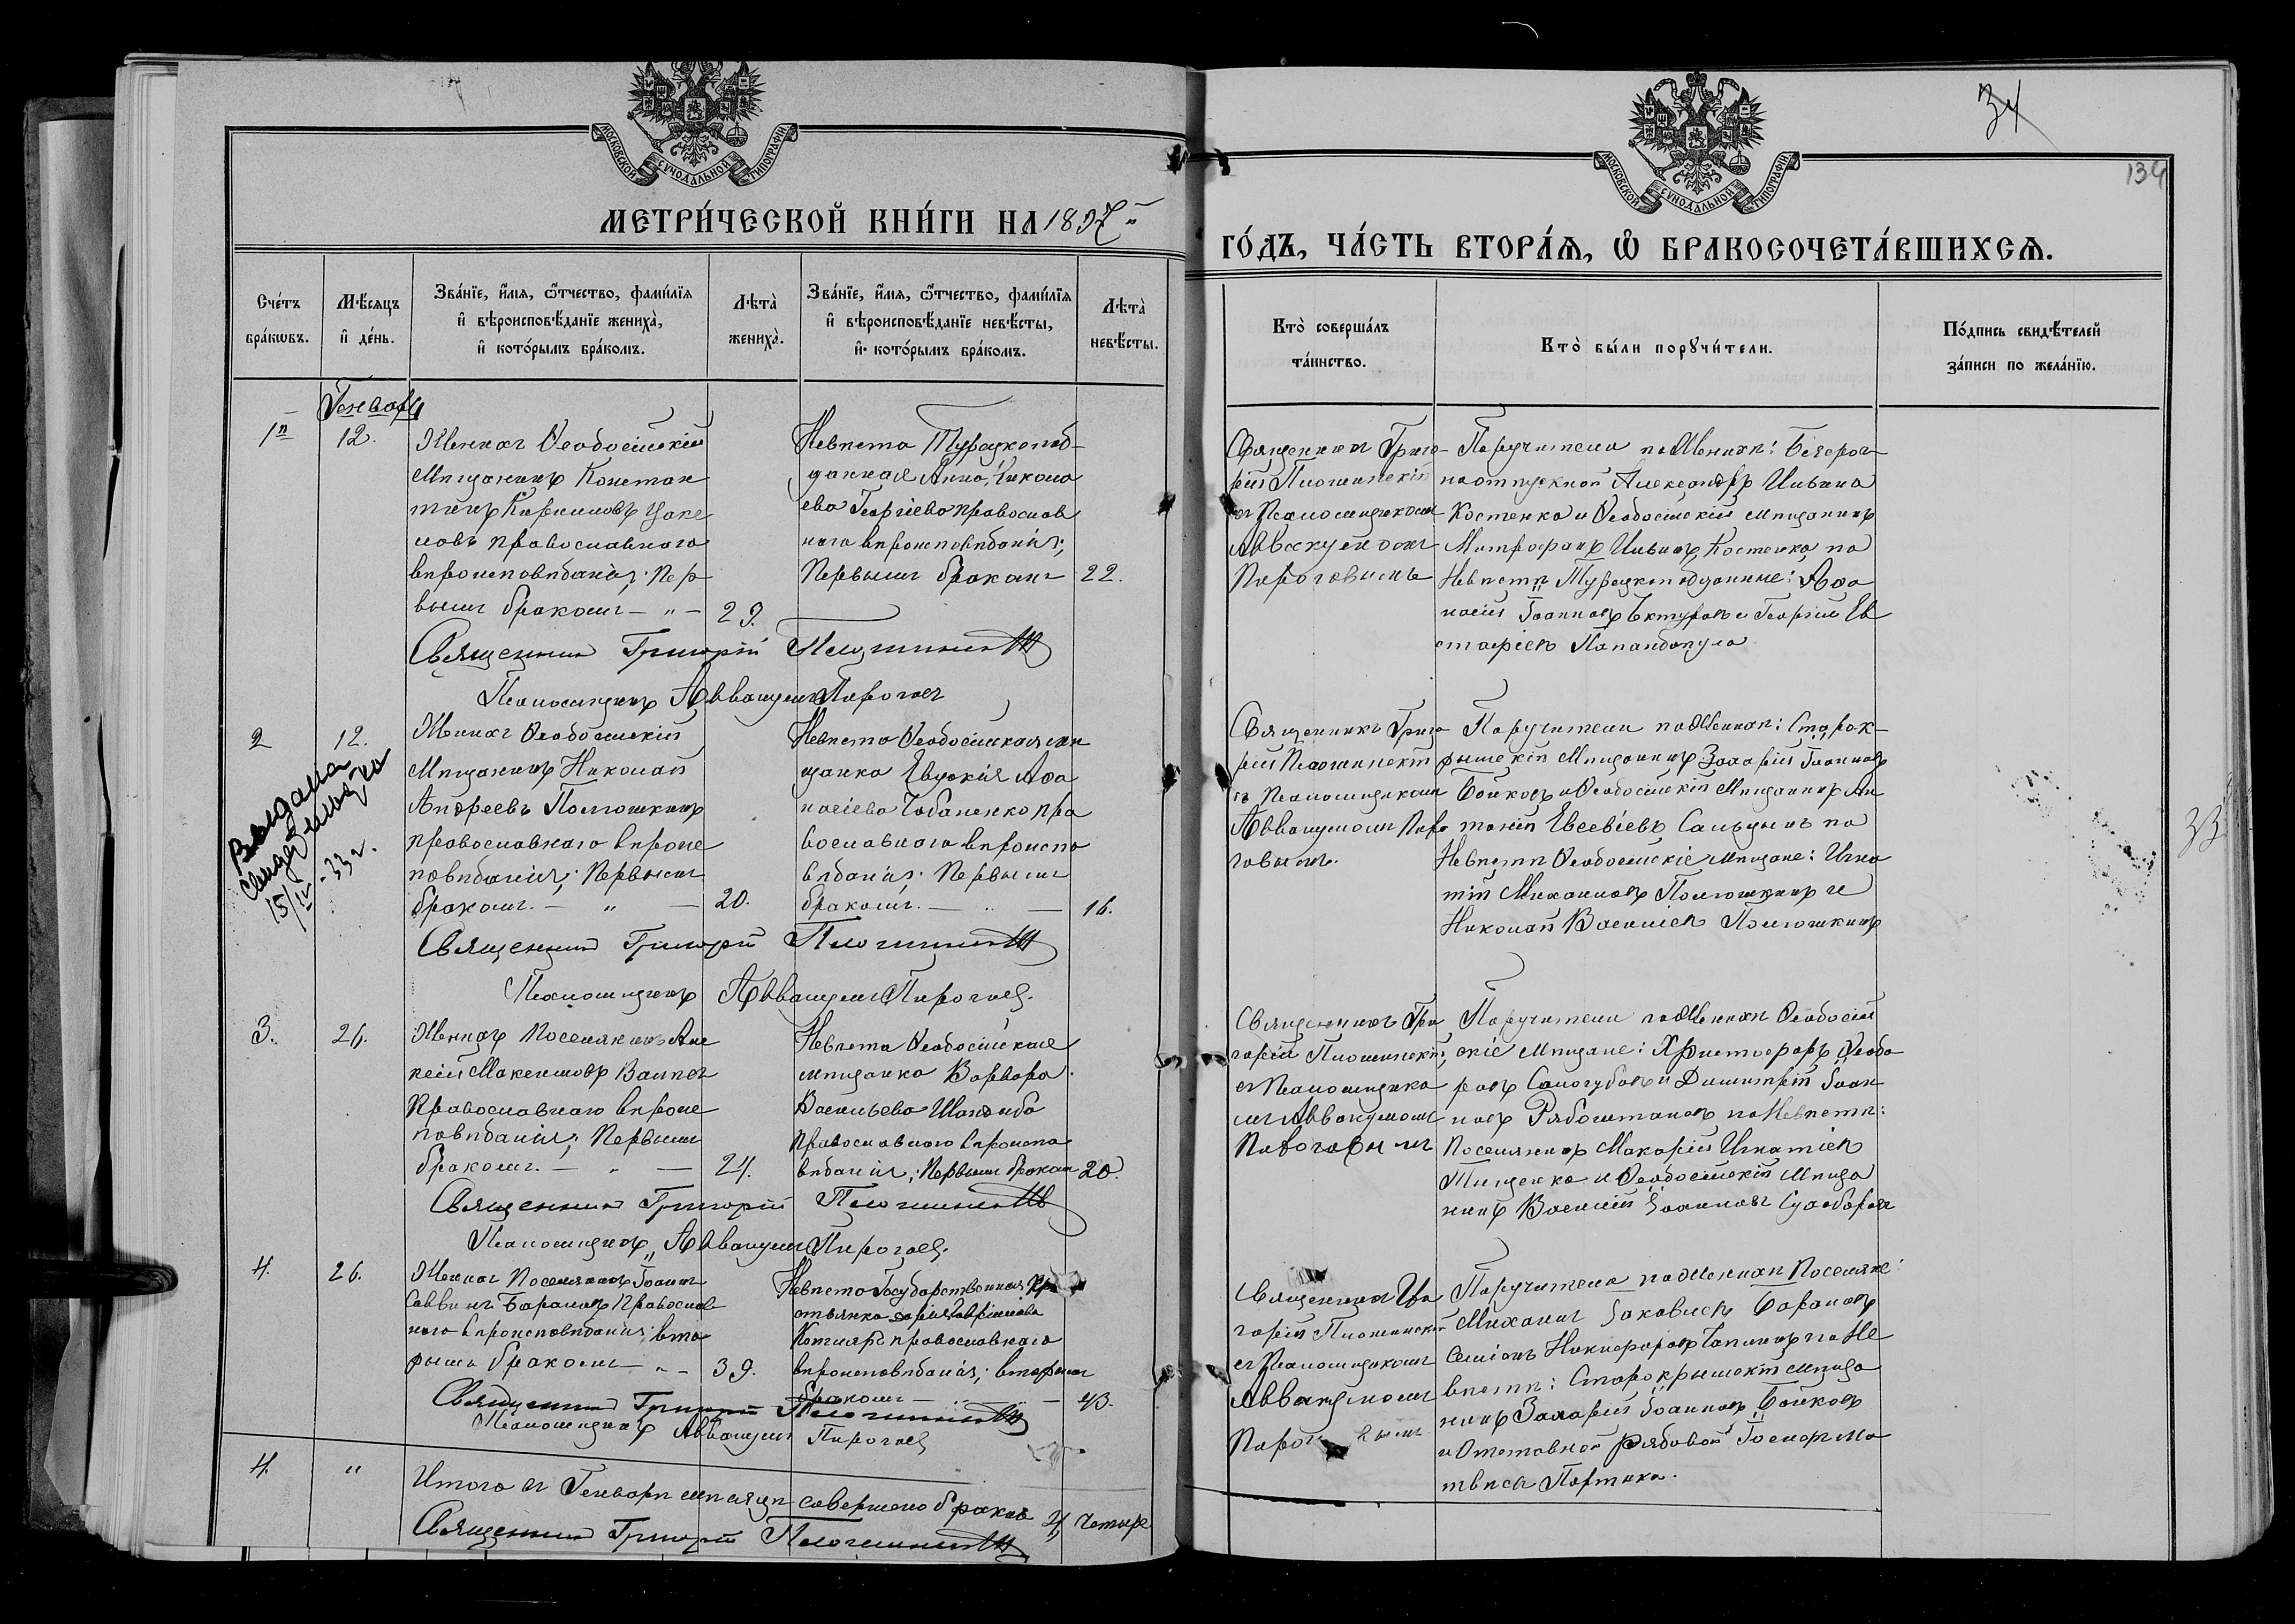 34
134
МОСКОВСКОЙ СУНОДАЛЬНОЙ ТИПОГРАФІИ
МОСКОВСКОЙ СУНОДАЛЬНОЙ ТИПОГРАФІИ
МЕТРИ́ЧЕСКОЙ КНИ́ГИ НА 1897
ГО́ДЪ, ЧА́СТЬ ВТОРА́Я, Ѡ БРАКОСОЧЕТА́ВШИХСЯ.
Сче́тъ бра́кѡвъ.
Мѣ́сяцъ и҆ де́нь.
Зва́нїе, и҆́мя, ѻ҆́тчество, фами́лїя
и҆ вѣроисповѣ́данїе жениха̀,
и҆ кото́рымъ бра́комъ.
Лѣта̀ жениха̀.
Зва́нїе, и҆́мя, ѻ҆́тчество, фами́лїя
и҆ вѣроисповѣ́данїе невѣ́сты,
и҆ кото́рымъ бра́комъ.
Лѣта̀ невѣ́сты.
Кто̀ соверша́лъ та́инство.
Кто̀ бы́ли порꙋчи́тели.
По́дпись свидѣ́телей
за́писи по жела́нїю.
Генварь
1й
12.
Женихъ Ѳеодосійскій
Мѣщанинъ Констан
тинъ Кириловъ
православнаго
вѣроисповѣданія; Пер
вымъ бракомъ — " —
29.
Невѣста Турецкопод-
данная Анна Никола
ева Георгіева православ
наго вѣроисповѣданія;
Первымъ бракомъ
22.
Священникъ Григо-
рій
съ Псаломщикомъ
Аввакумомъ
Пироговымъ
Поручители по Женихѣ:
Александръ Ивана
Костенко и Ѳеодосійскій мѣщанинъ
Митрофанъ Ивановъ Костенко, по
Невѣстѣ Турецкоподданные: Аѳа
насій Іоанновъ и Георгій Ев
стафіевъ Папандопуло
Священникъ Григорій
Псаломщикъ Аввакумъ Пироговъ
2
12.
Выдана
15/IV - 33 г.
Женихъ Ѳеодосійскій
Мѣщанинъ Николай
Андреевъ Полюшкинъ
православнаго вѣроис
повѣданія; Первымъ
бракомъ. — " —
20.
Невѣста Ѳеодосійская мѣ
щанка Евдокія Аѳа
насіева Чабаненко пра
вославнаго вѣроиспо
вѣданія; Первымъ
бракомъ. — " —
16.
Священникъ Григо
рій
съ Псаломщикомъ
Аввакумомъ Пиро
говымъ.
Поручители по Женихѣ: Старок-
рымскій Мѣщанинъ Захарій Іоанновъ
Бойковъ и Ѳеодосійскій Мѣщанинъ Ан
тоній Евсевіевъ по
Невѣстѣ Ѳеодосійскіе мѣщане: Игна
тій Михаиловъ Полюшкинъ и
Николай Васильевъ Полюшкинъ
33
Священникъ Григорій
Псаломщикъ Аввакумъ Пироговъ.
3.
26.
Женихъ Поселянинъ Але
ксій Максимовъ
Православнаго вѣроис
повѣданія; Первымъ
бракомъ. — " —
24.
Невѣста Ѳеодосійская
мѣщанка Варвара
Васильева
Православнаго вѣроиспо
вѣданія; Первымъ бракомъ
20.
Священникъ Гри
горій
съ Псаломщико
мъ Аввакумомъ
Пироговымъ
Поручители по Женихѣ Ѳеодосій
скіе мѣщане: Христофоръ Ѳеодо
ровъ Самогубовъ и Димитрій Іоан
новъ по Невѣстѣ:
Поселянинъ Макарій Игнатіевъ
Тищенко и Ѳеодосійскій мѣща
нинъ Василій Іоанновъ
Священникъ Григорій
Псаломщикъ Аввакумъ Пироговъ.
4.
26.
Женихъ Поселянинъ Іоаннъ
Саввинъ Барановъ Православ
наго вѣроисповѣданія; вто
рымъ бракомъ — " —
39.
Невѣста Государственная Кре
стьянка Гавріилова
православнаго
вѣроисповѣданія; вторымъ
бракомъ —
43.
Священникъ Гри
горій
съ Псаломщикомъ
Аввакумомъ
Пироговымъ
Поручители по Женихѣ Поселяне:
Михаилъ Іаковлевъ Барановъ
Симеонъ Никифоровъ по Не
вѣстѣ: Старокрымскій мѣща
нинъ Захарій Іоанновъ Бойковъ
и Отставной рядовой Іосифъ Ма
твѣевъ
Священникъ Григорій
Псаломщикъ Аввакумъ Пироговъ
4.
"
Итого въ Генварѣ мѣсяцѣ совершено браковъ 4, четыре
Священникъ Григорій